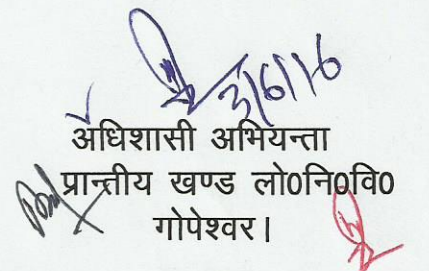 3/6/16
अधिशासी अभियन्ता
प्रान्तीय खण्ड लो0नि0वि0
गोपेश्वर।